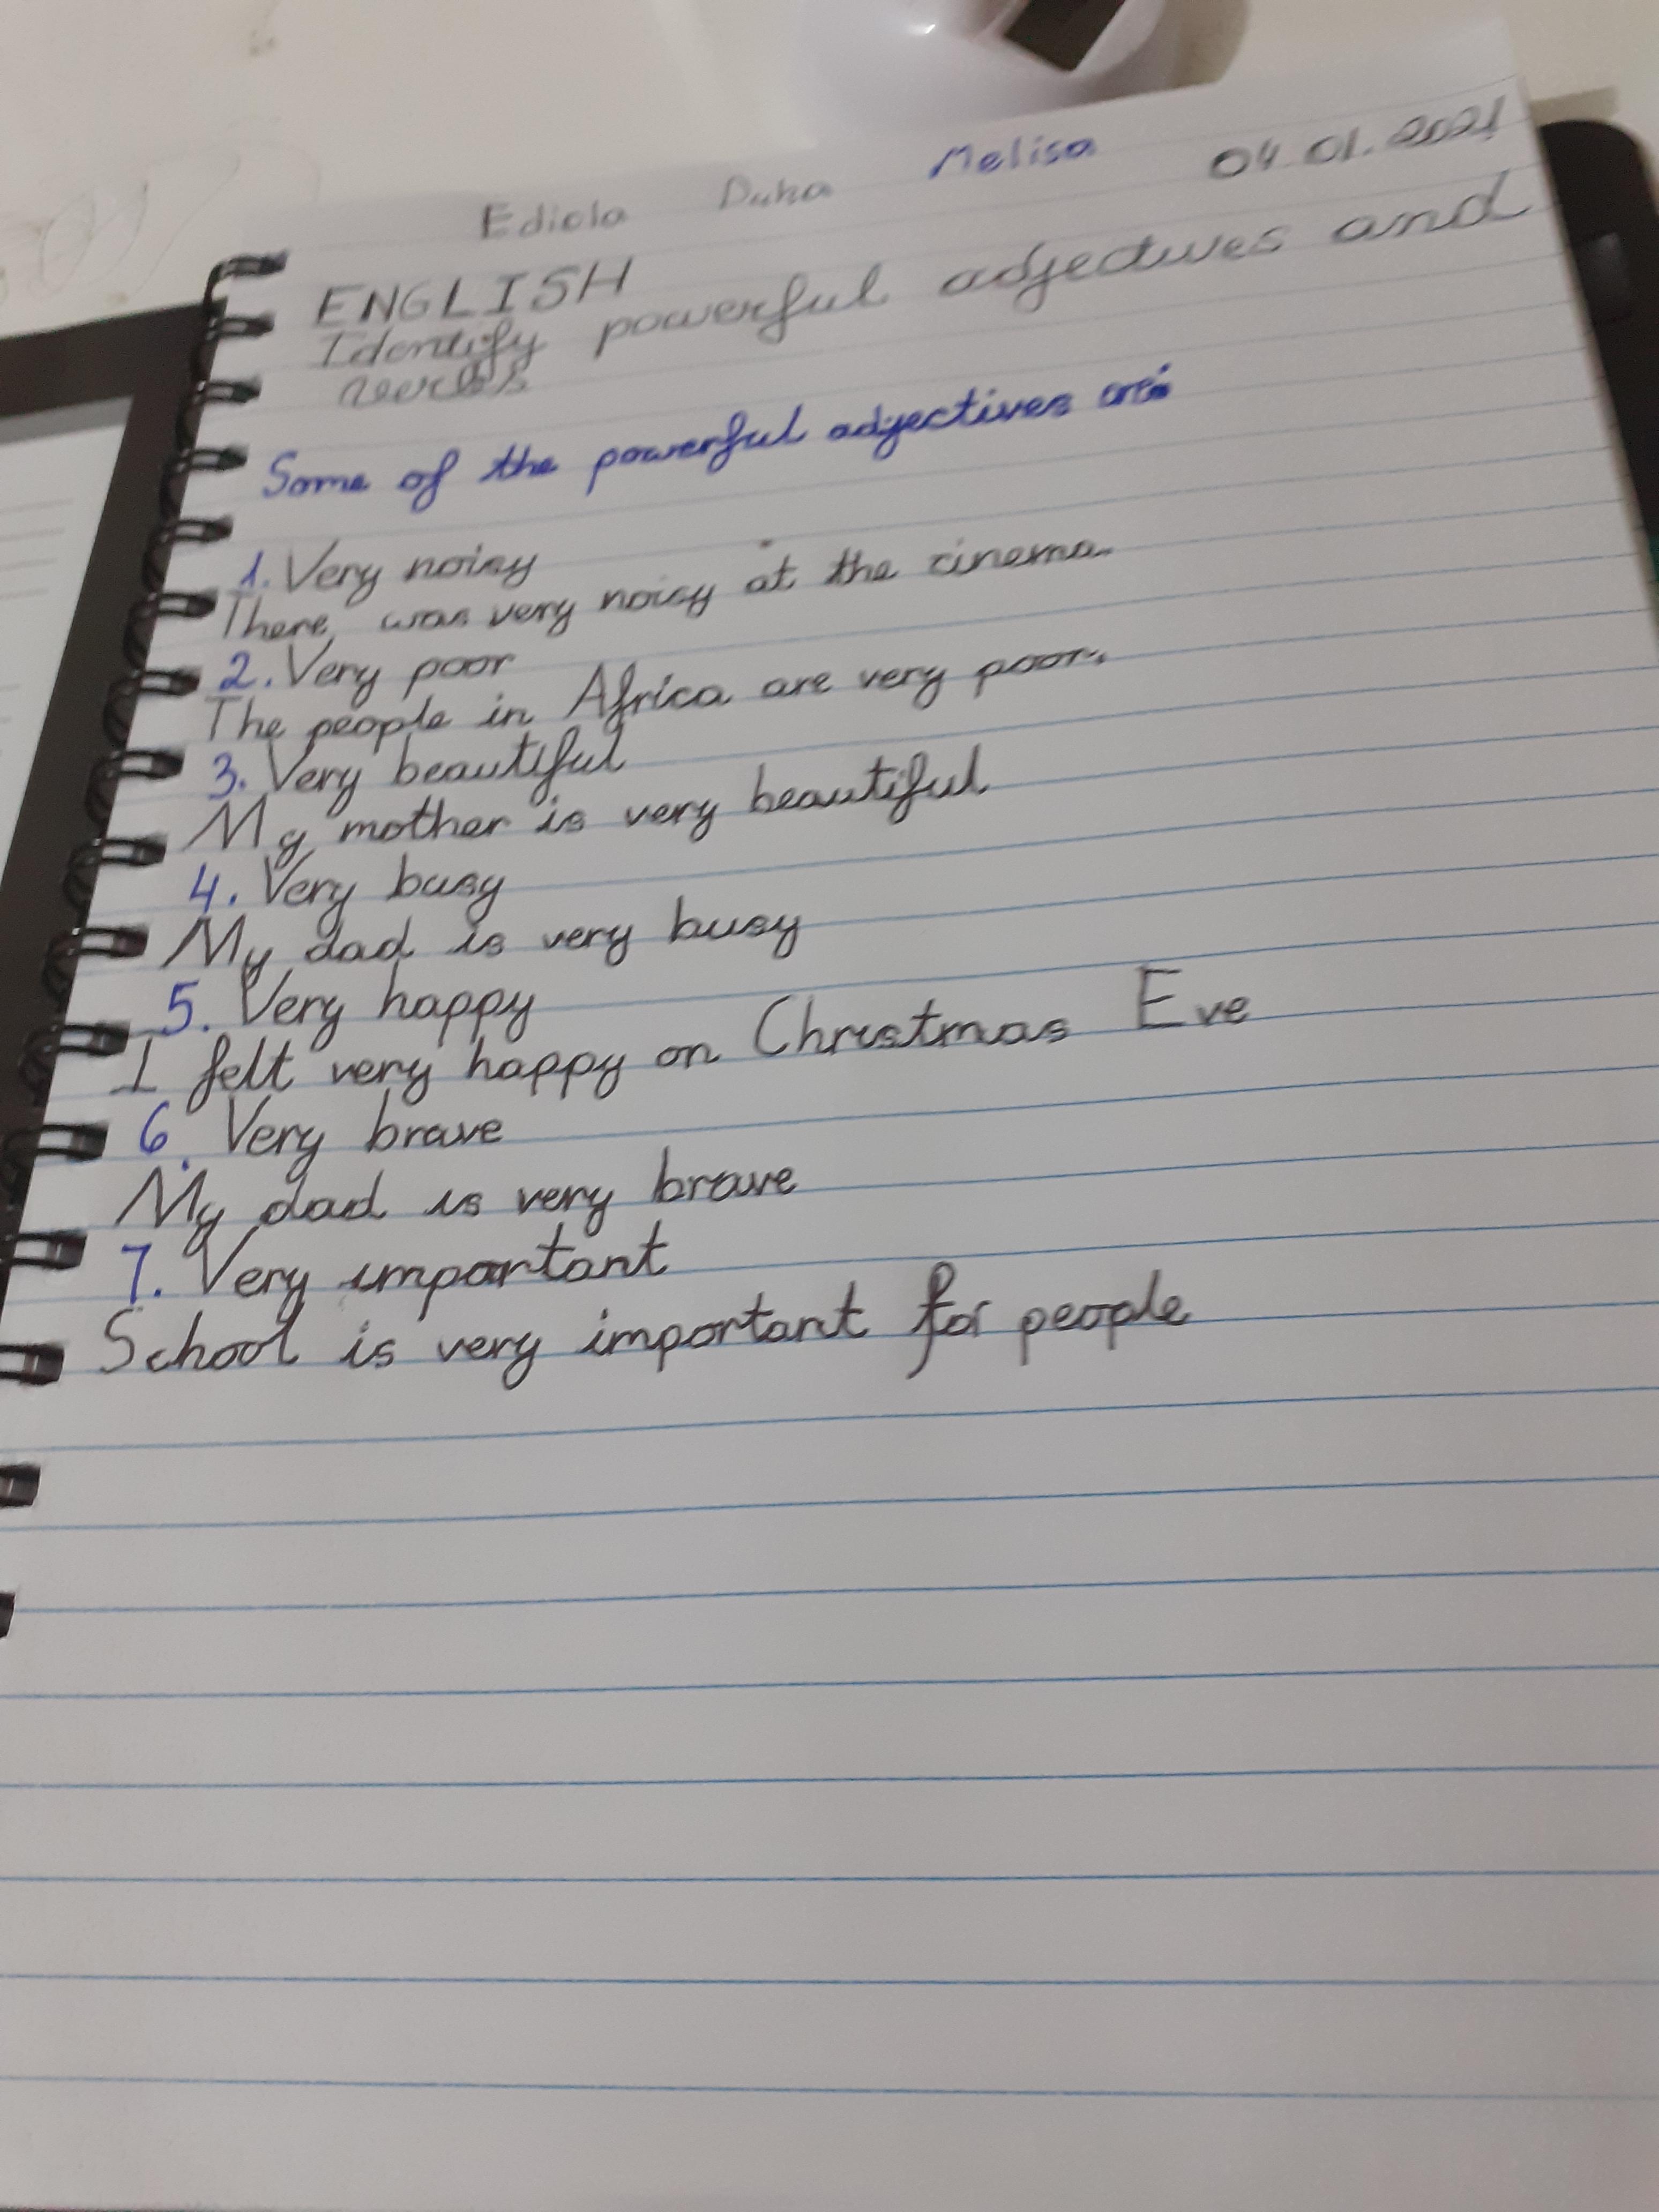 Ediola Duha Melisa 04 01.2021
ENGLISH
Identify powerful adjectives and
verbs
Some of the powerful adjectives are:
1. Very noisy
There was very noisy at the cinema.
2. Very poor
The people in Africa are very poor.
3. Very beautiful
My mother is very beautiful
4. Very busy
My dad is very busy
5. Very happy
I felt very happy on Christmas Eve
6. Very brave
My dad is very brave
7. Very important
School is very important for people